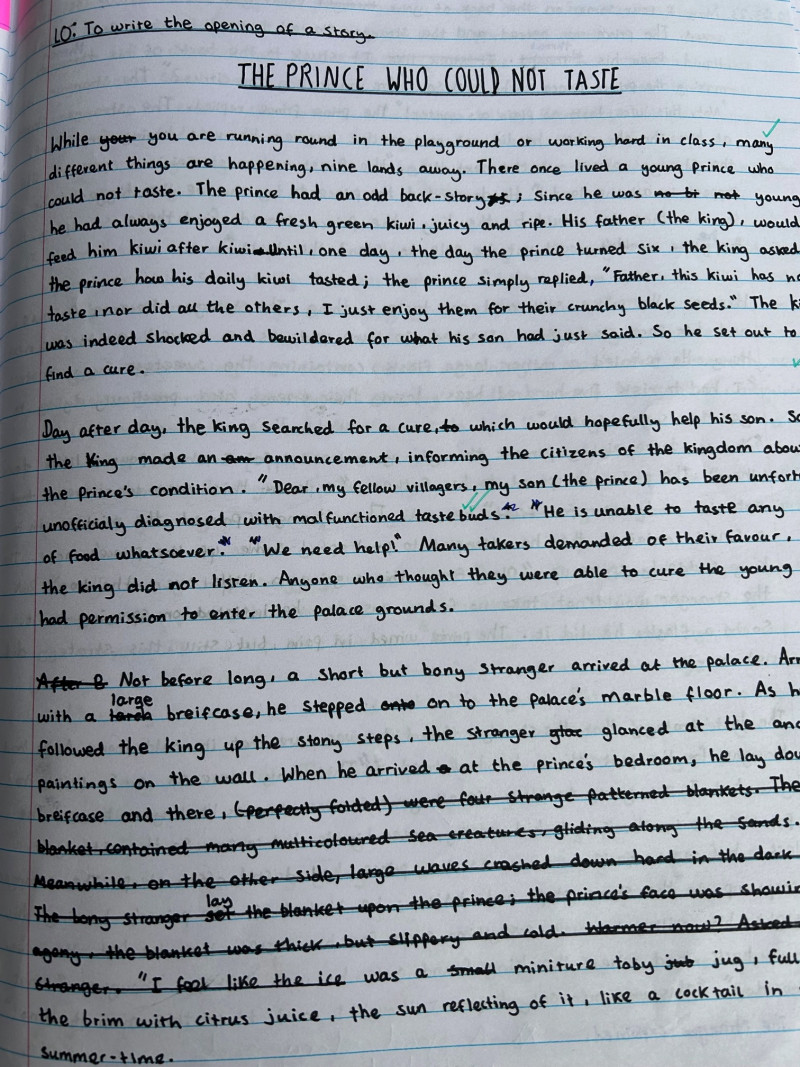 LO: To write the opening of a story.
THE PRINCE WHO COULD NOT TASTE
While your you are running round in the playground or working hard in class, many
different things are happening, nine lands away. There once lived a young Prince who
could not taste. The prince had an odd back-story; Since he was no bt not young
he had always enjoyed a fresh green kiwi, juicy and ripe. His father (the king), would
feed him kiwi after kiwi. Until, one day, the day the prince turned six, the king asked
the prince how his daily kiwi tasted; the prince simply replied, "Father, this kiwi has no
taste, nor did all the others, I just enjoy them for their crunchy black seeds." The ki
was indeed shocked and bewildered for what his son had just said. So he set out to
find a cure.
Day after day, the king searched for a cure, to which would hopefully help his son. So
the King made an am announcement, informing the citizens of the kingdom abou
the prince's condition. "Dear, my fellow villagers, my son (the prince) has been unfort
unofficialy diagnosed with malfunctioned taste buds. "He is unable to taste any
of food whatsoever." "We need help!" Many takers demanded of their favour,
the king did not listen. Anyone who thought they were able to cure the young
had permission to enter the palace grounds.
After Not before long, a short but bony stranger arrived at the palace. Arr
large
with a breifcase, he stepped onto on to the palace's marble floor. As h
followed the king up the stony steps, the stranger glac glanced at the anc
paintings on the wall. When he arrived at the prince's bedroom, he lay dow
breifcase and there, (perfectly folded) were four strange patterned blankets. The
blanket, contained many multicoloured sea creatures, gliding along the sands.
Meanwhile, on the other side, large waves crashed down hard in the dark
lay
The bony stranger set the blanket upon the prince; the prince's face was showin
agony, the blanket was thick, but slippery and cold. Warmer now? Asked
stranger. "I feel like the ice was a small miniture toby jub jug, full
the brim with citrus juice, the sun reflecting of it, like a cocktail in
summer-time.